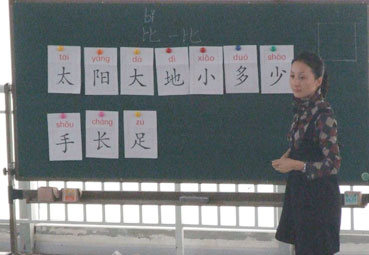 比一比
tài yáng dà dì xiǎo duō shǎo
太 阳 大 地 小 多 少
shǒu cháng zú
手 长 足